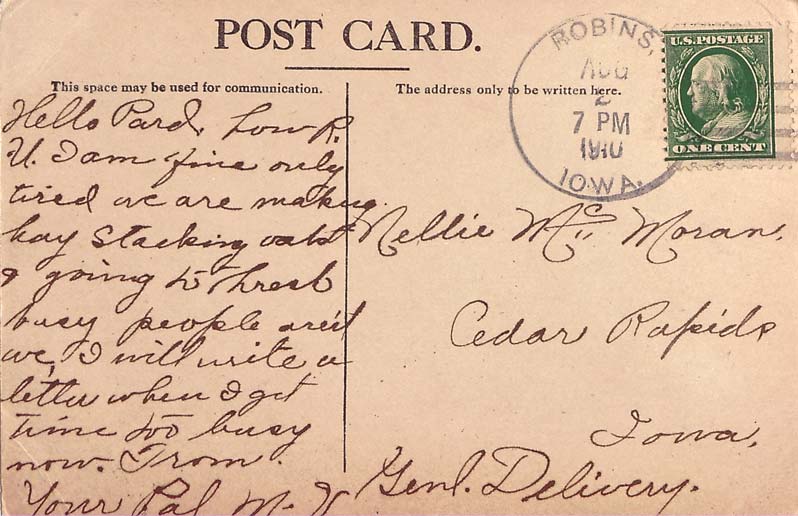 POST CARD.
This space may be used for communication.
The address only to be written here.
ROBINS,
AUG
2
7 PM
1910
IOWA.
U.S. POSTAGE
ONE CENT
Hello Pard, how R.
U. I am fine only
tired we are making
hay stacking oats
& going to thresh
busy people aren't
we, I will write a
letter when I get
time too busy
now. From.
Your Pal M.
Nellie Mc Moran.
Cedar Rapids
Iowa.
Genl. Delivery.